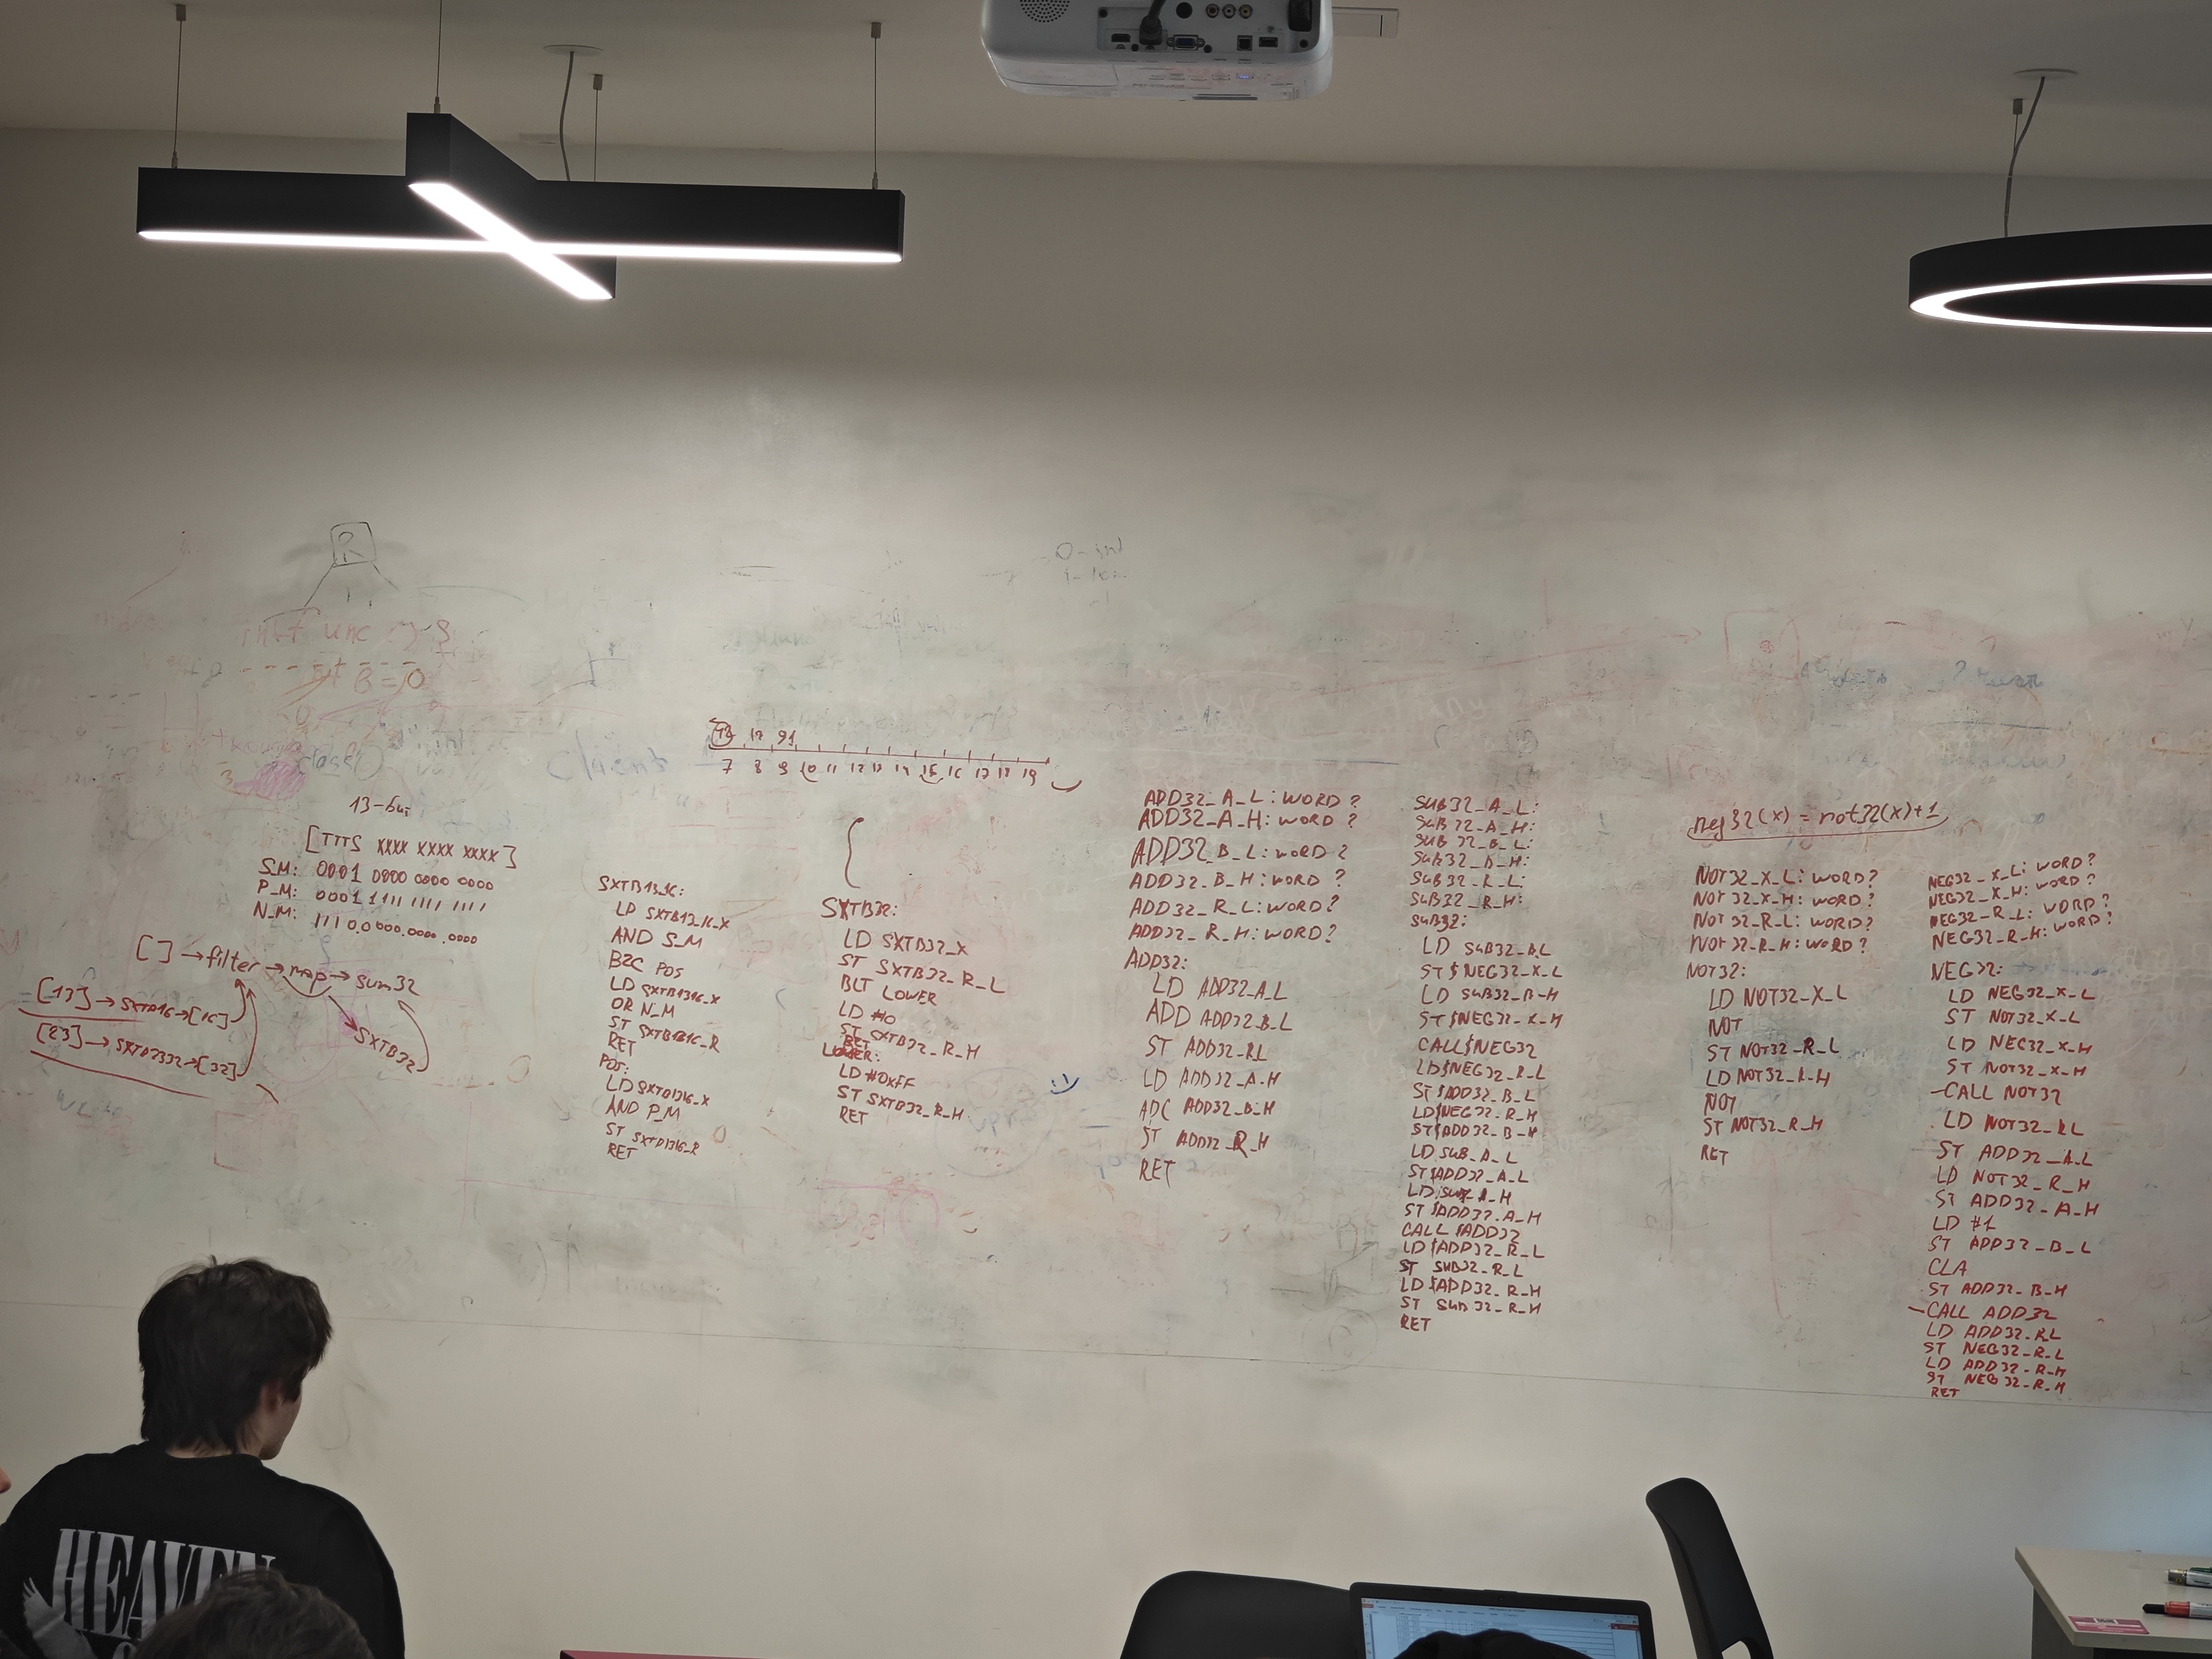 13-бит
[TTTS XXXX XXXX XXXX]
S_M: 0001 0000 0000 0000
P_M: 0001 1111 1111 1111
N_M: 1110.0000.0000.0000
[ ] → filter → map → sum32
[13] → SXTB16 → [16]
[23] → SXTB2332 → [32]
SXTB32
13 12 91
7 8 9 10 11 12 13 14 15 16 17 18 19
SXTB13_16:
LD SXTB13_16_X
AND S_M
BZC POS
LD SXTB1316_X
OR N_M
ST SXTB1316_R
RET
POS:
LD SXTB1316_X
AND P_M
ST SXTB1316_R
RET
SXTB32:
LD SXTB32_X
ST SXTB32_R_L
BLT LOWER
LD #0
ST SXTB32_R_H
RET
LOWER:
LD #0xFF
ST SXTB32_R_H
RET
ADD32_A_L: WORD ?
ADD32_A_H: WORD ?
ADD32_B_L: WORD ?
ADD32_B_H: WORD ?
ADD32_R_L: WORD ?
ADD32_R_H: WORD ?
ADD32:
LD ADD32_A_L
ADD ADD32_B_L
ST ADD32_RL
LD ADD32_A_H
ADC ADD32_B_H
ST ADD32_R_H
RET
SUB32_A_L:
SUB32_A_H:
SUB32_B_L:
SUB32_B_H:
SUB32_R_L:
SUB32_R_H:
SUB32:
LD SUB32_BL
ST $NEG32_X_L
LD SUB32_B_H
ST $NEG32_X_H
CALL $NEG32
LD $NEG32_R_L
ST $ADD32_B_L
LD $NEG32_R_H
ST $ADD32_B_H
LD SUB_A_L
ST $ADD32_A_L
LD SUB_A_H
ST $ADD32_A_H
CALL $ADD32
LD $ADD32_R_L
ST SUB32_R_L
LD $ADD32_R_H
ST SUB32_R_H
RET
neg32(x) = not32(x)+1
NOT32_X_L: WORD?
NOT32_X_H: WORD?
NOT32_R_L: WORD?
NOT32_R_H: WORD?
NOT32:
LD NOT32_X_L
NOT
ST NOT32_R_L
LD NOT32_X_H
NOT
ST NOT32_R_H
RET
NEG32_X_L: WORD?
NEG32_X_H: WORD?
NEG32_R_L: WORD?
NEG32_R_H: WORD?
NEG32:
LD NEG32_X_L
ST NOT32_X_L
LD NEG32_X_H
ST NOT32_X_H
CALL NOT32
LD NOT32_RL
ST ADD32_A_L
LD NOT32_R_H
ST ADD32_A_H
LD #1
ST ADD32_B_L
CLA
ST ADD32_B_H
CALL ADD32
LD ADD32_RL
ST NEG32_R_L
LD ADD32_R_H
ST NEG32_R_H
RET
HEAVEN